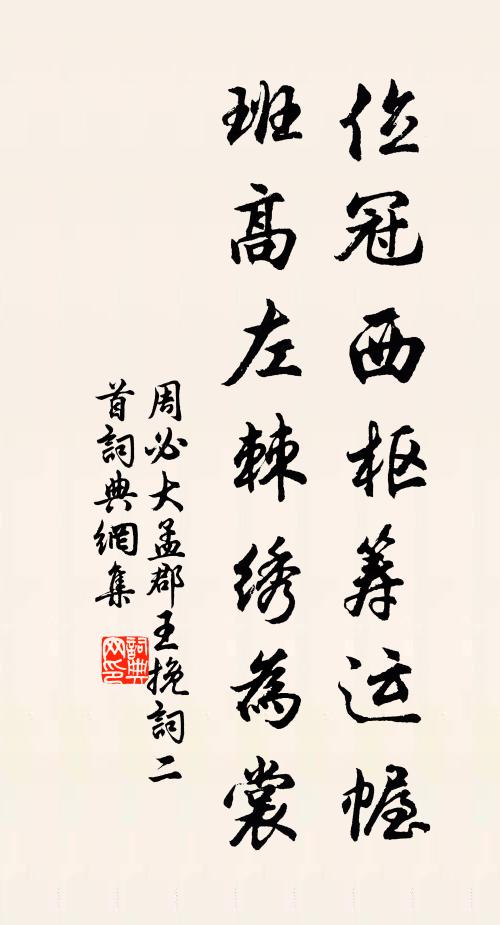 位冠西枢筹运幄
班高左棘绣為裳
周必大孟郡王挽詞二
首詞典網集
詞典网印